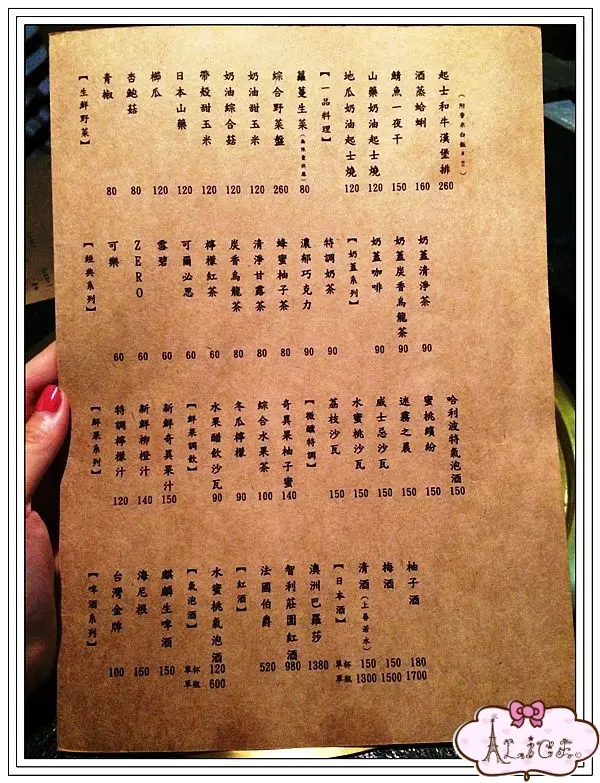 【生鮮野菜】
青椒 80
杏鮑菇 80
櫛瓜 120
日本山藥 120
帶殼甜玉米 120
奶油綜合菇 120
奶油甜玉米 120
綜合野菜盤 260
蘿蔓生菜(無限量供應) 80
【一品料理】
地瓜奶油起士燒 120
山藥奶油起士燒 120
鯖魚一夜干 150
酒蒸蛤蜊 160
起士和牛漢堡排 260
(附香米白飯*2)
【經典系列】
可樂 60
ZERO 60
雪碧 60
可爾必思 60
檸檬紅茶 60
炭香烏龍茶 80
清淨甘露茶 80
蜂蜜柚子茶 80
濃郁巧克力 90
特調奶茶 90
【奶蓋系列】
奶蓋咖啡 90
奶蓋炭香烏龍茶 90
奶蓋清淨茶 90
【鮮果系列】
特調檸檬汁 120
新鮮柳橙汁 140
新鮮奇異果汁 150
【鮮果調飲】
水果醋飲沙瓦 90
冬瓜檸檬 90
綜合水果茶 100
奇異果柚子蜜 140
【微醺特調】
荔枝沙瓦 150
水蜜桃沙瓦 150
威士忌沙瓦 150
迷霧之晨 150
蜜桃繽紛 150
哈利波特氣泡酒 150
【啤酒系列】
台灣金牌 100
海尼根 150
麒麟生啤酒 150
【氣泡酒】
水蜜桃氣泡酒 單杯 120 單瓶 600
【紅酒】
法國伯爵 520
智利莊園紅酒 980
澳洲巴羅莎 1380
【日本酒】
清酒(上善若水) 單杯 150 單瓶 1300
梅酒 150 1500
柚子酒 180 1700
ALICE